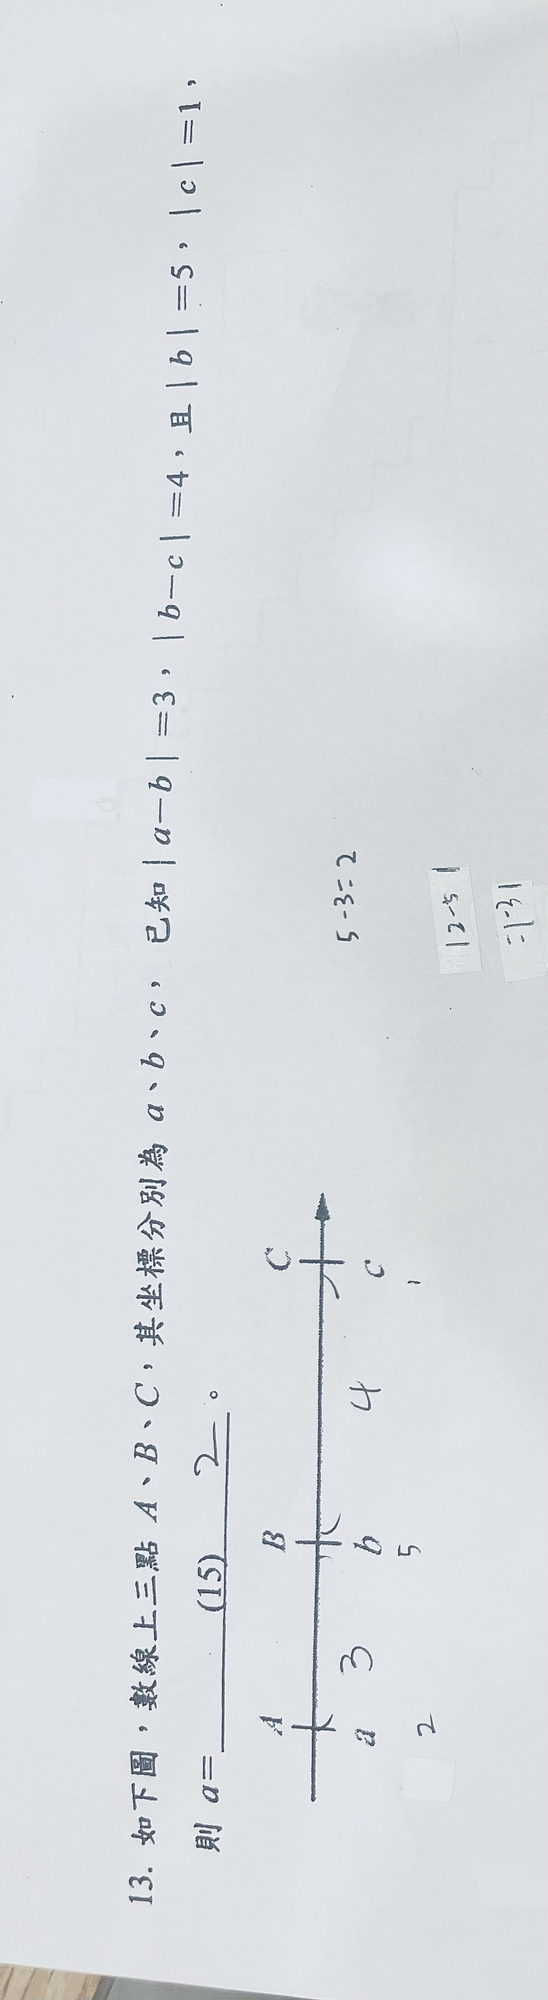 13. 如下圖，數線上三點 A、B、C，其坐標分別為 a、b、c，已知│a－b│=3，│b－c│=4，且│b│=5，│c│=1，
則 a= (15) 2 。
A B C
3 4
a b c
2 5 1
5-3=2
|2-5|
=|-3|